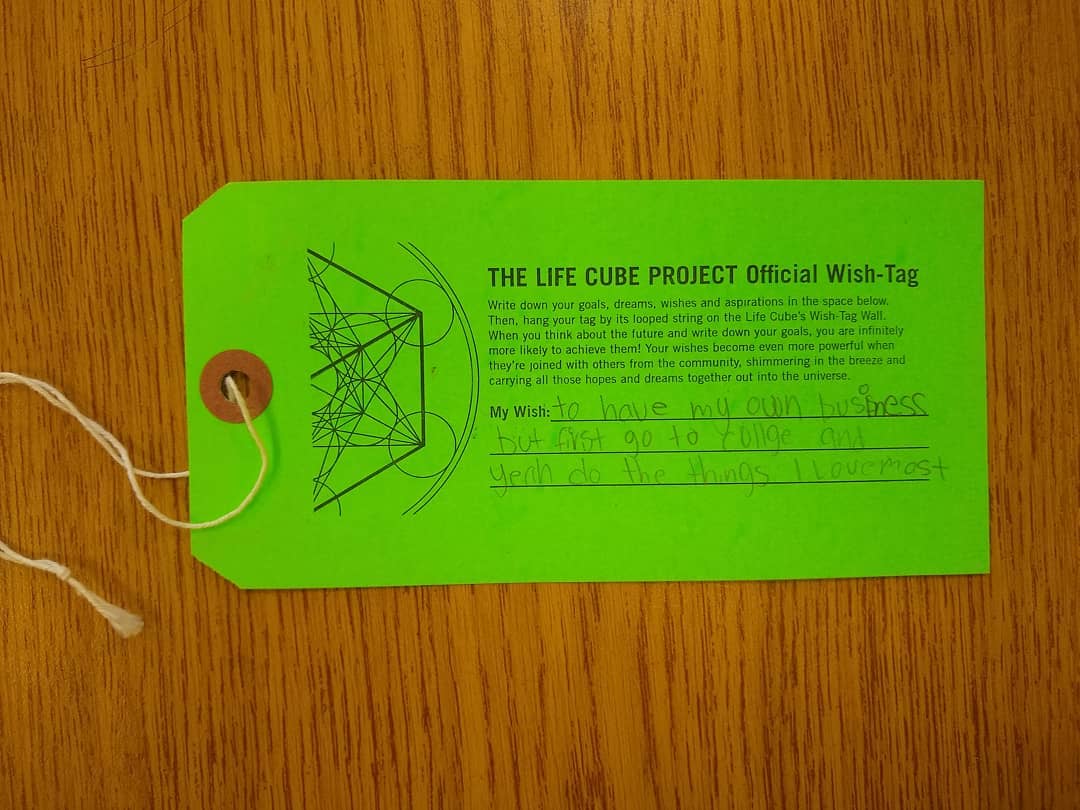 THE LIFE CUBE PROJECT Official Wish-Tag
Write down your goals, dreams, wishes and aspirations in the space below.
Then, hang your tag by its looped string on the Life Cube's Wish-Tag Wall.
When you think about the future and write down your goals, you are infinitely
more likely to achieve them! Your wishes become even more powerful when
they're joined with others from the community, shimmering in the breeze and
carrying all those hopes and dreams together out into the universe.
My Wish: to have my own business
but first go to collge and
yeah do the things I Love most